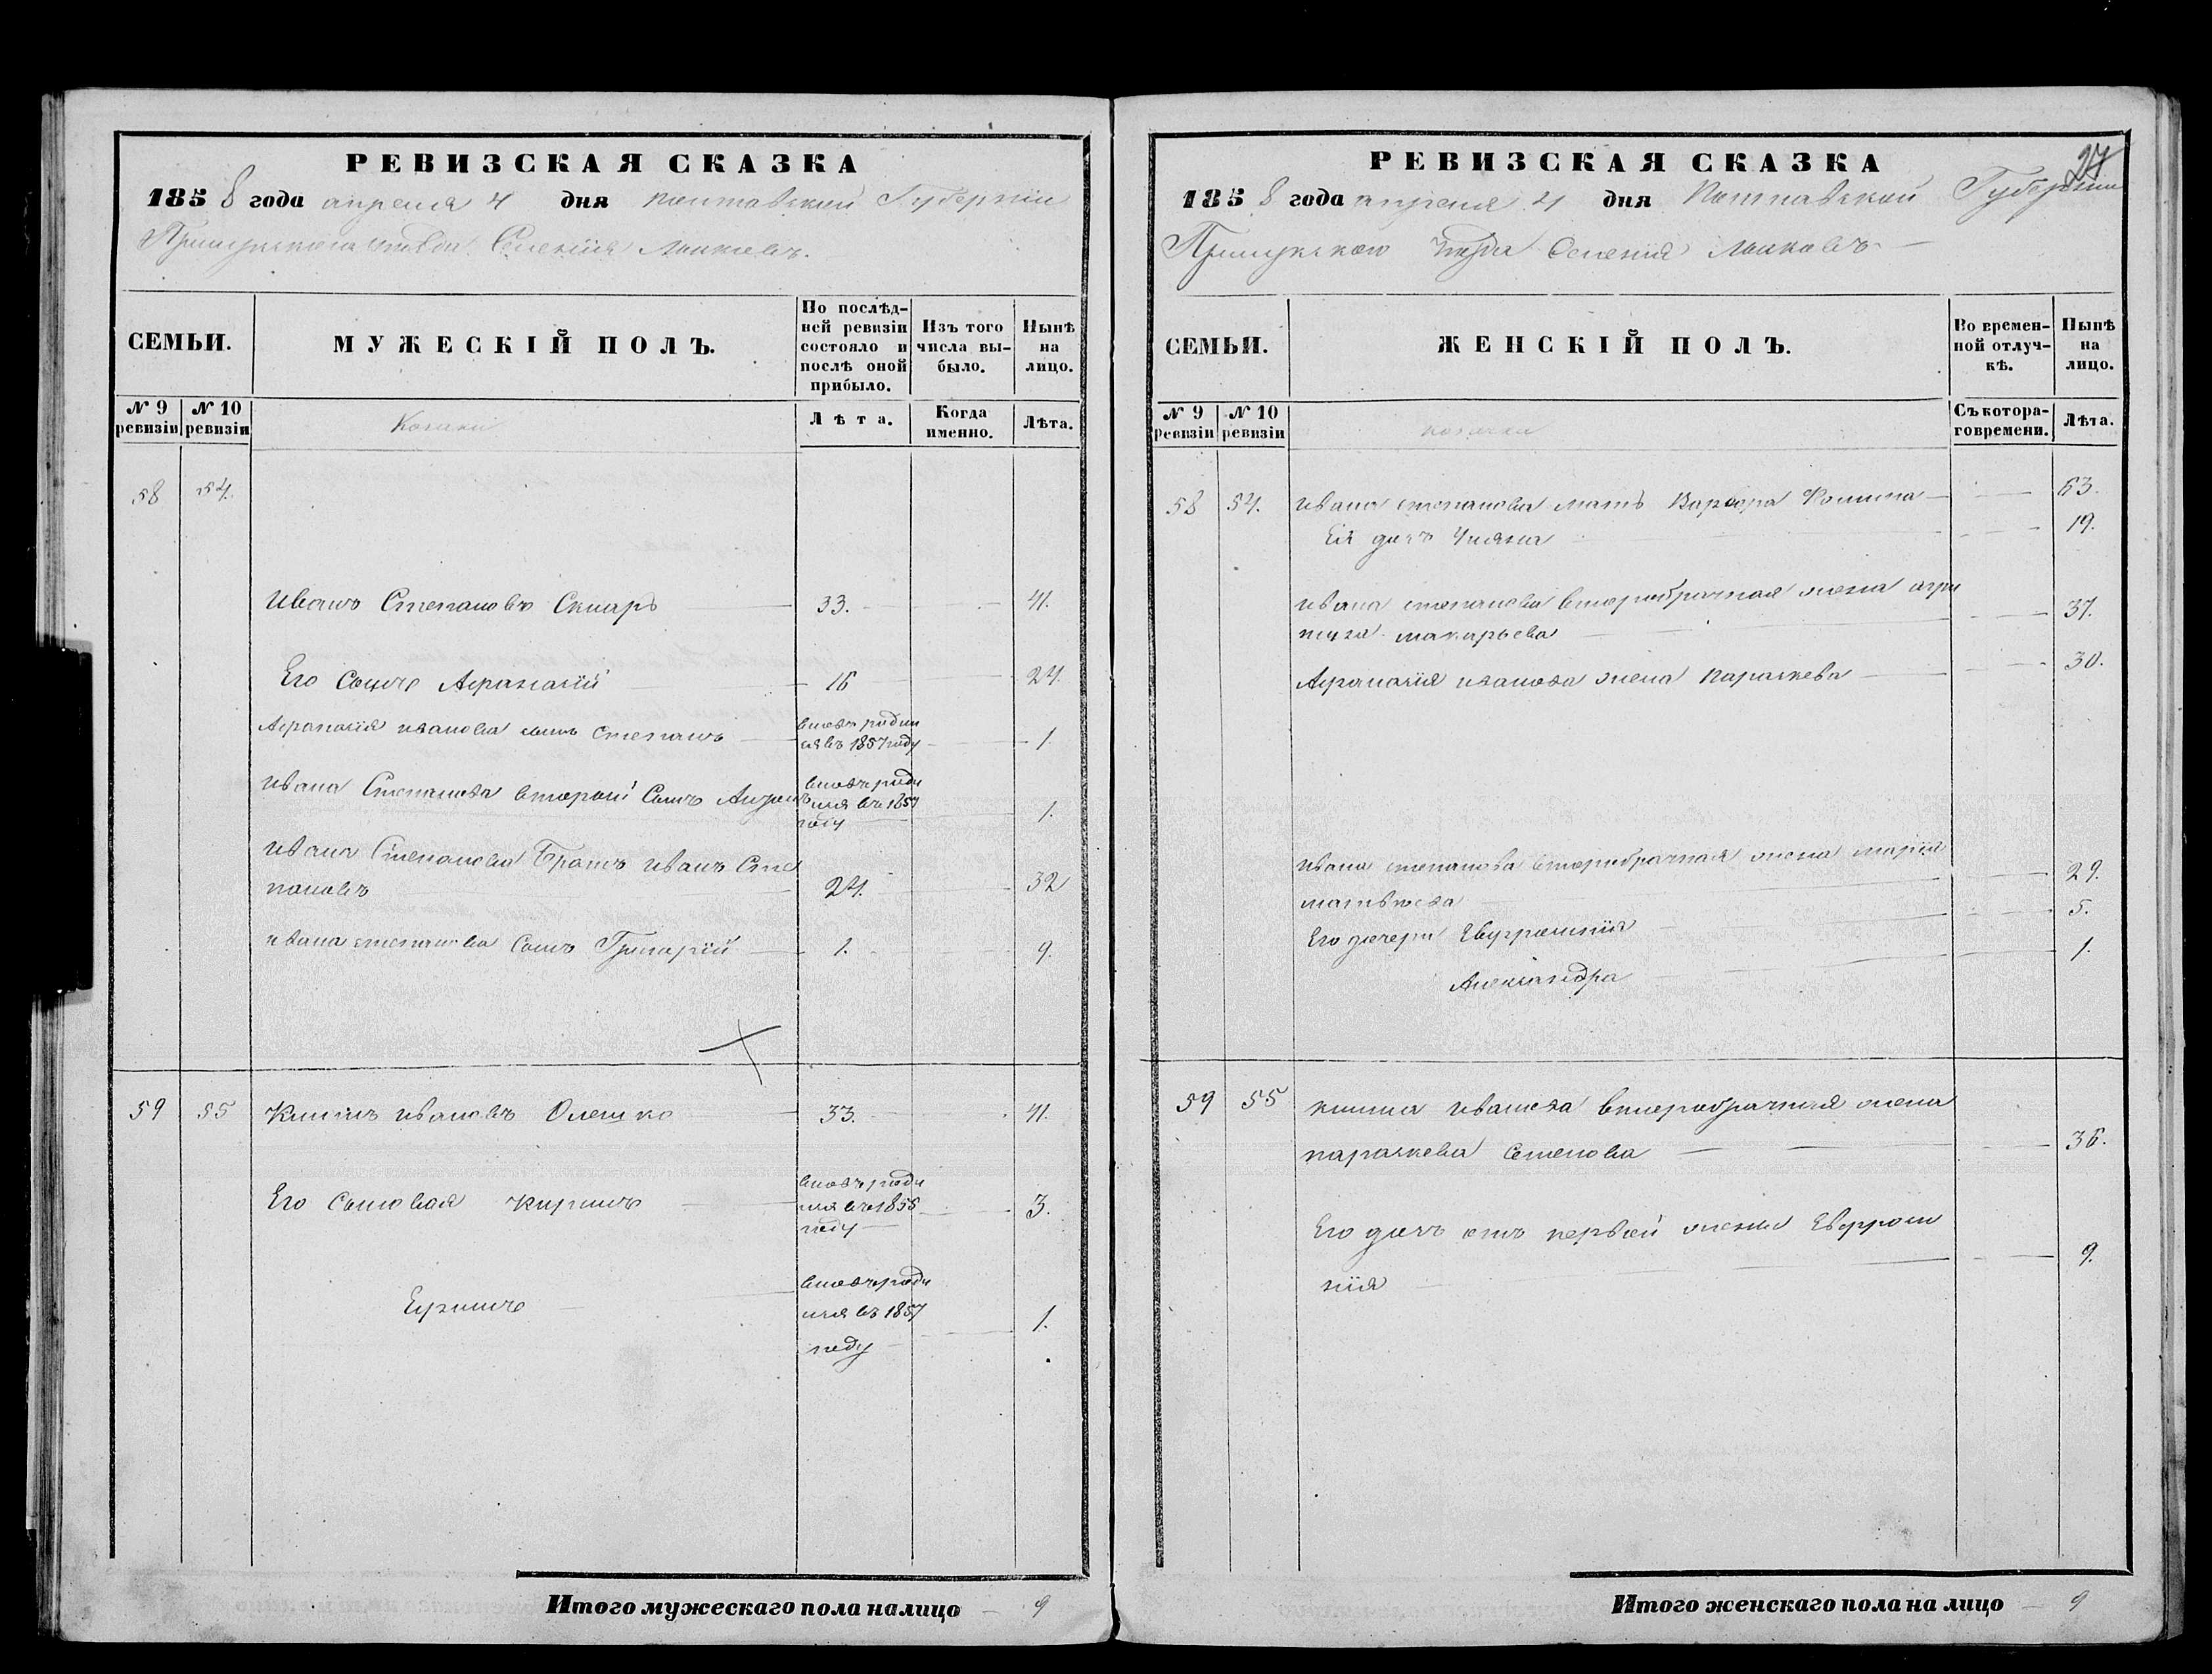 РЕВИЗСКАЯ СКАЗКА
1858 года апреля 4 дня Полтавской Губернии
Прилукского уезда Селения Манжевъ.
СЕМЬИ.
МУЖЕСКІЙ ПОЛЪ.
По послѣд-
ней ревизіи
состояло и
послѣ оной
прибыло.
Изъ того
числа вы-
было.
Нынѣ
на
лицо.
№ 9
ревизіи
№ 10
ревизіи
Козаки
Лѣта.
Когда
именно.
Лѣта.
58 54.
Иванъ Степановъ Скларъ 33. 41.
Его Сынъ Афанасій 16 24.
Афанасія иванова сынъ степанъ вновь роди
лся въ 1857 году 1.
ивана Степанова второй Сынъ вновь роди
лся въ 1857
году 1.
ивана Степанова Братъ иванъ Сте
пановъ 24. 32
ивана степанова Сынъ Григорій 1. 9.
59 55 ивановъ Олешко 33. 41.
Его Сыновья Кирилъ вновь роди
лся въ 1855
году 3.
вновь роди
лся въ 1857
году 1.
Итого мужескаго пола налицо 9
27
РЕВИЗСКАЯ СКАЗКА
1858 года апреля 4 дня Полтавской Губернии
Прилукского уезда Селения
СЕМЬИ.
ЖЕНСКІЙ ПОЛЪ.
Во времен-
ной отлуч-
кѣ.
Нынѣ
на
лицо.
№ 9
ревизіи
№ 10
ревизіи
козачки
Съ котора-
го времени.
Лѣта.
58 54. ивана степанова мать Варвара Фомина 63.
Ея дочь Уляна 19.
ивана степанова второбрачная жена агри
пина макарьева 37.
Афанасія иванова жена параскева 30.
ивана степанова второбрачная жена марія
матвѣева 29.
Его дочери Евфросинія 5.
Александра 1.
59 55 иванова второбрачная жена
параскева Семенова 36.
Его дочь отъ первой жены Евфроси
нія 9.
Итого женскаго пола на лицо 9